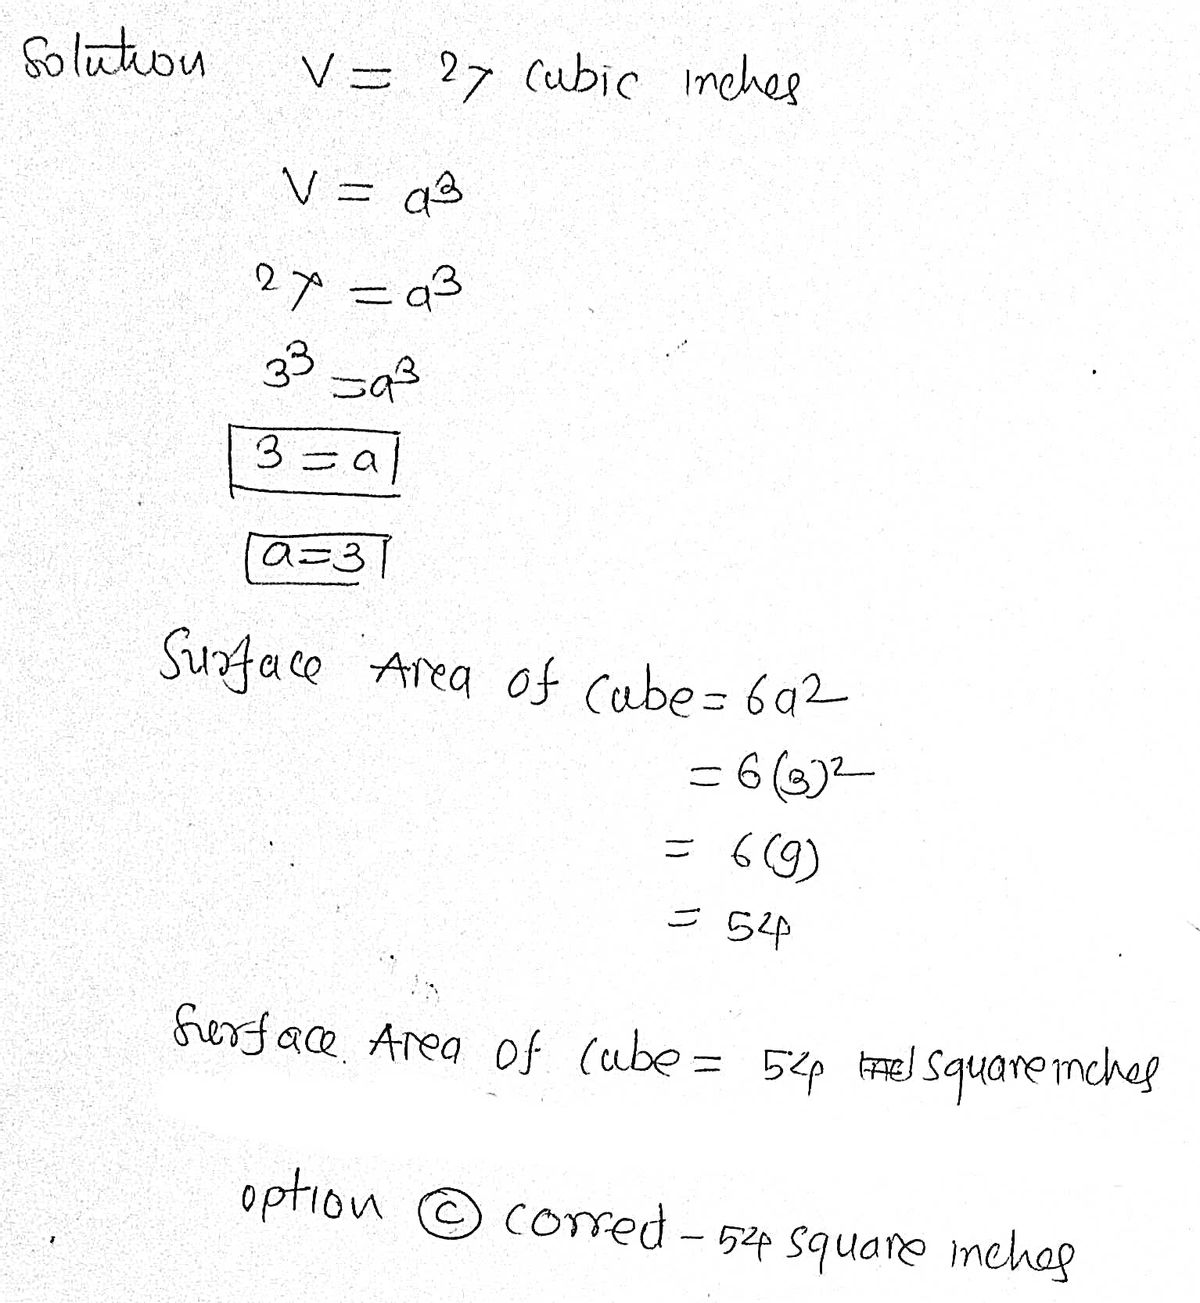 Solution V = 27 cubic inches
V = a³
27 = a³
3³ = a³
3 = a
a = 3
Surface Area of cube = 6a²
= 6(3)²
= 6(9)
= 54
Surface Area of cube = 54 square inches
option Ⓒ correct - 54 square inches